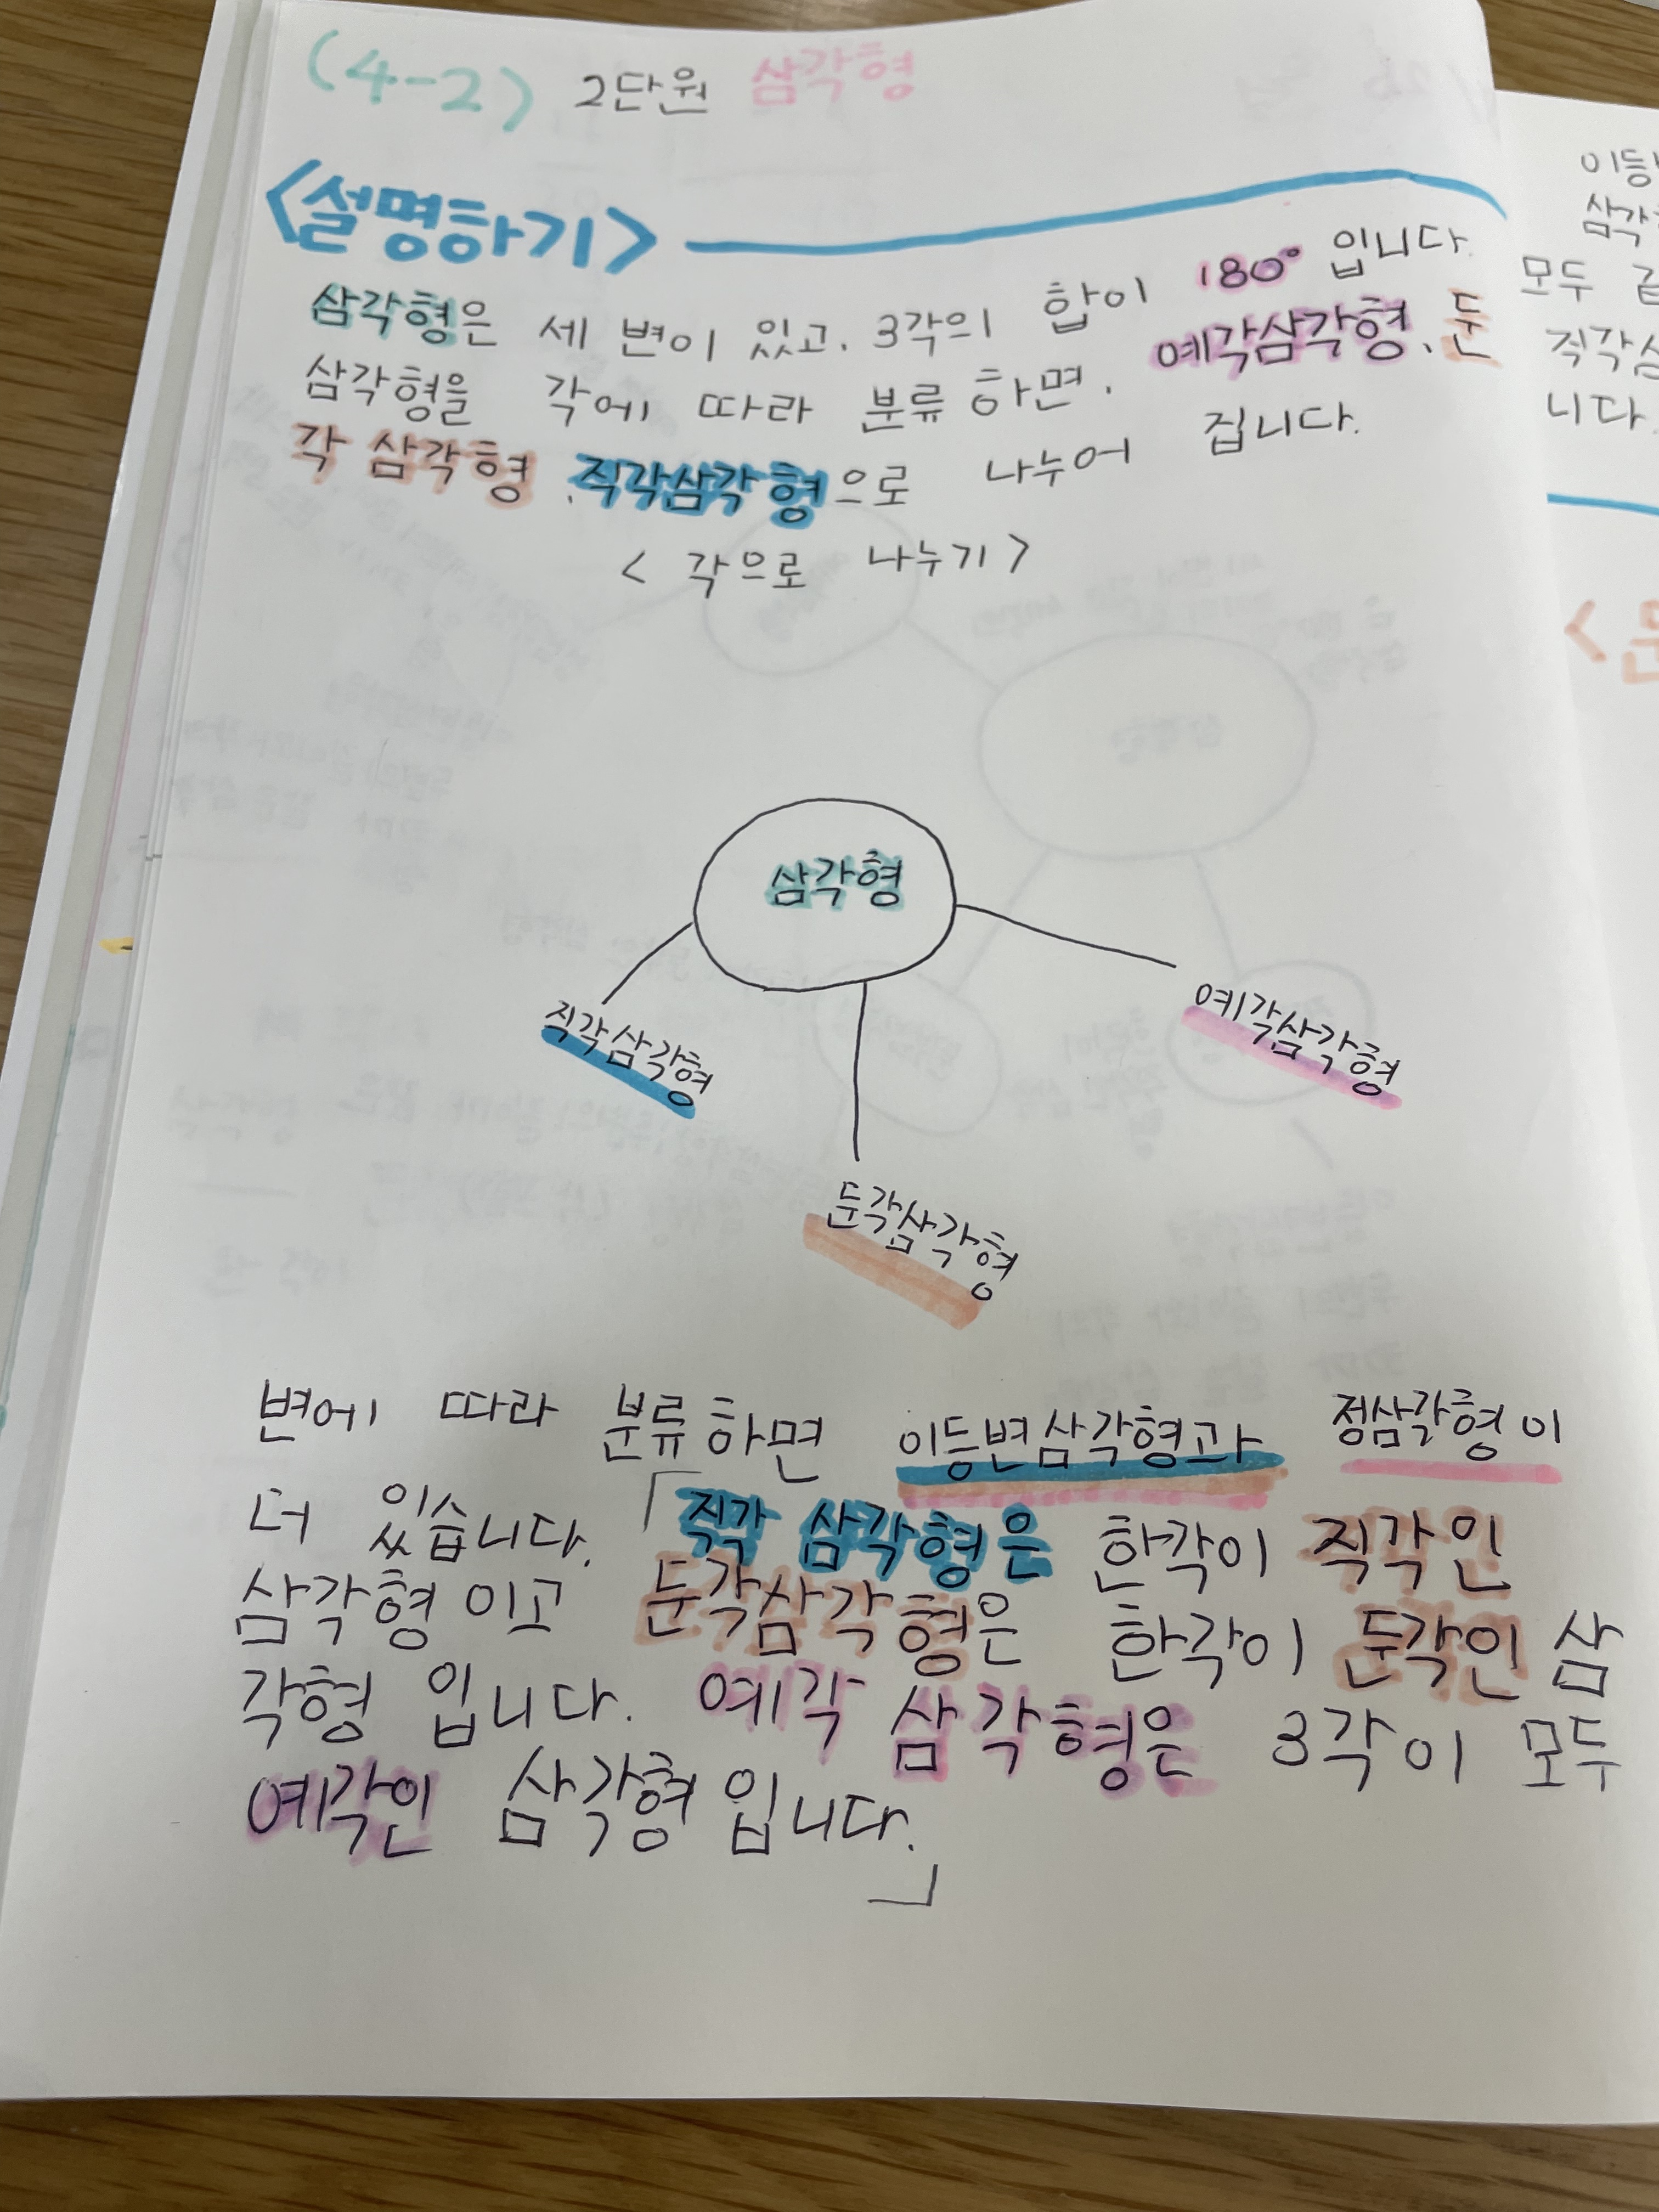 (4-2) 2단원 삼각형
<설명하기>
삼각형은 세 변이 있고, 3각의 합이 180° 입니다.
삼각형을 각에 따라 분류하면, 예각삼각형, 둔
각 삼각형, 직각삼각형으로 나누어 집니다.
< 각으로 나누기 >
삼각형
직각삼각형
예각삼각형
둔각삼각형
변에 따라 분류하면 이등변삼각형과 정삼각형이
더 있습니다. 「직각 삼각형은 한각이 직각인
삼각형이고 둔각삼각형은 한각이 둔각인 삼
각형 입니다. 예각 삼각형은 3각이 모두
예각인 삼각형입니다.」
모두
니다.